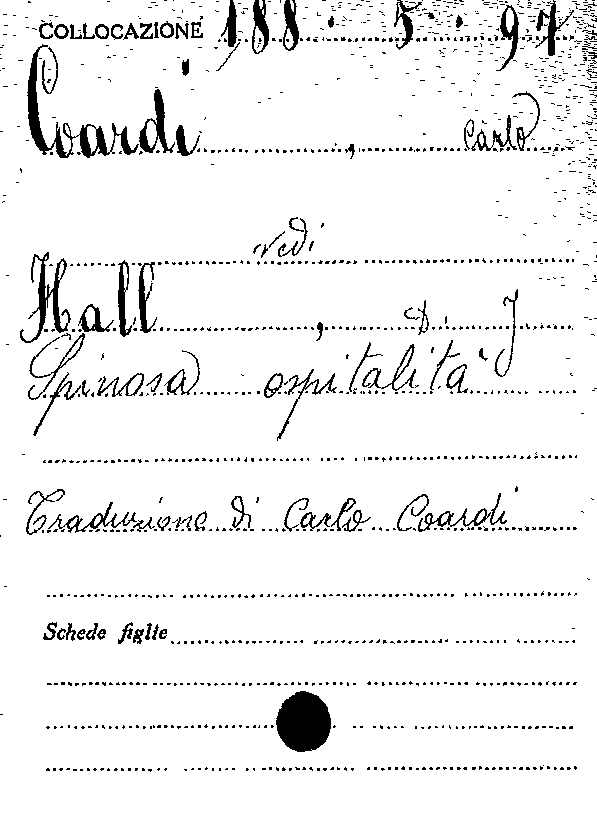 COLLOCAZIONE 188. 5. . 97
Coardi , Carlo
vedi
Hall , D. J
Spinosa ospitalità
Traduzione di Carlo Coardi
Schede figlie